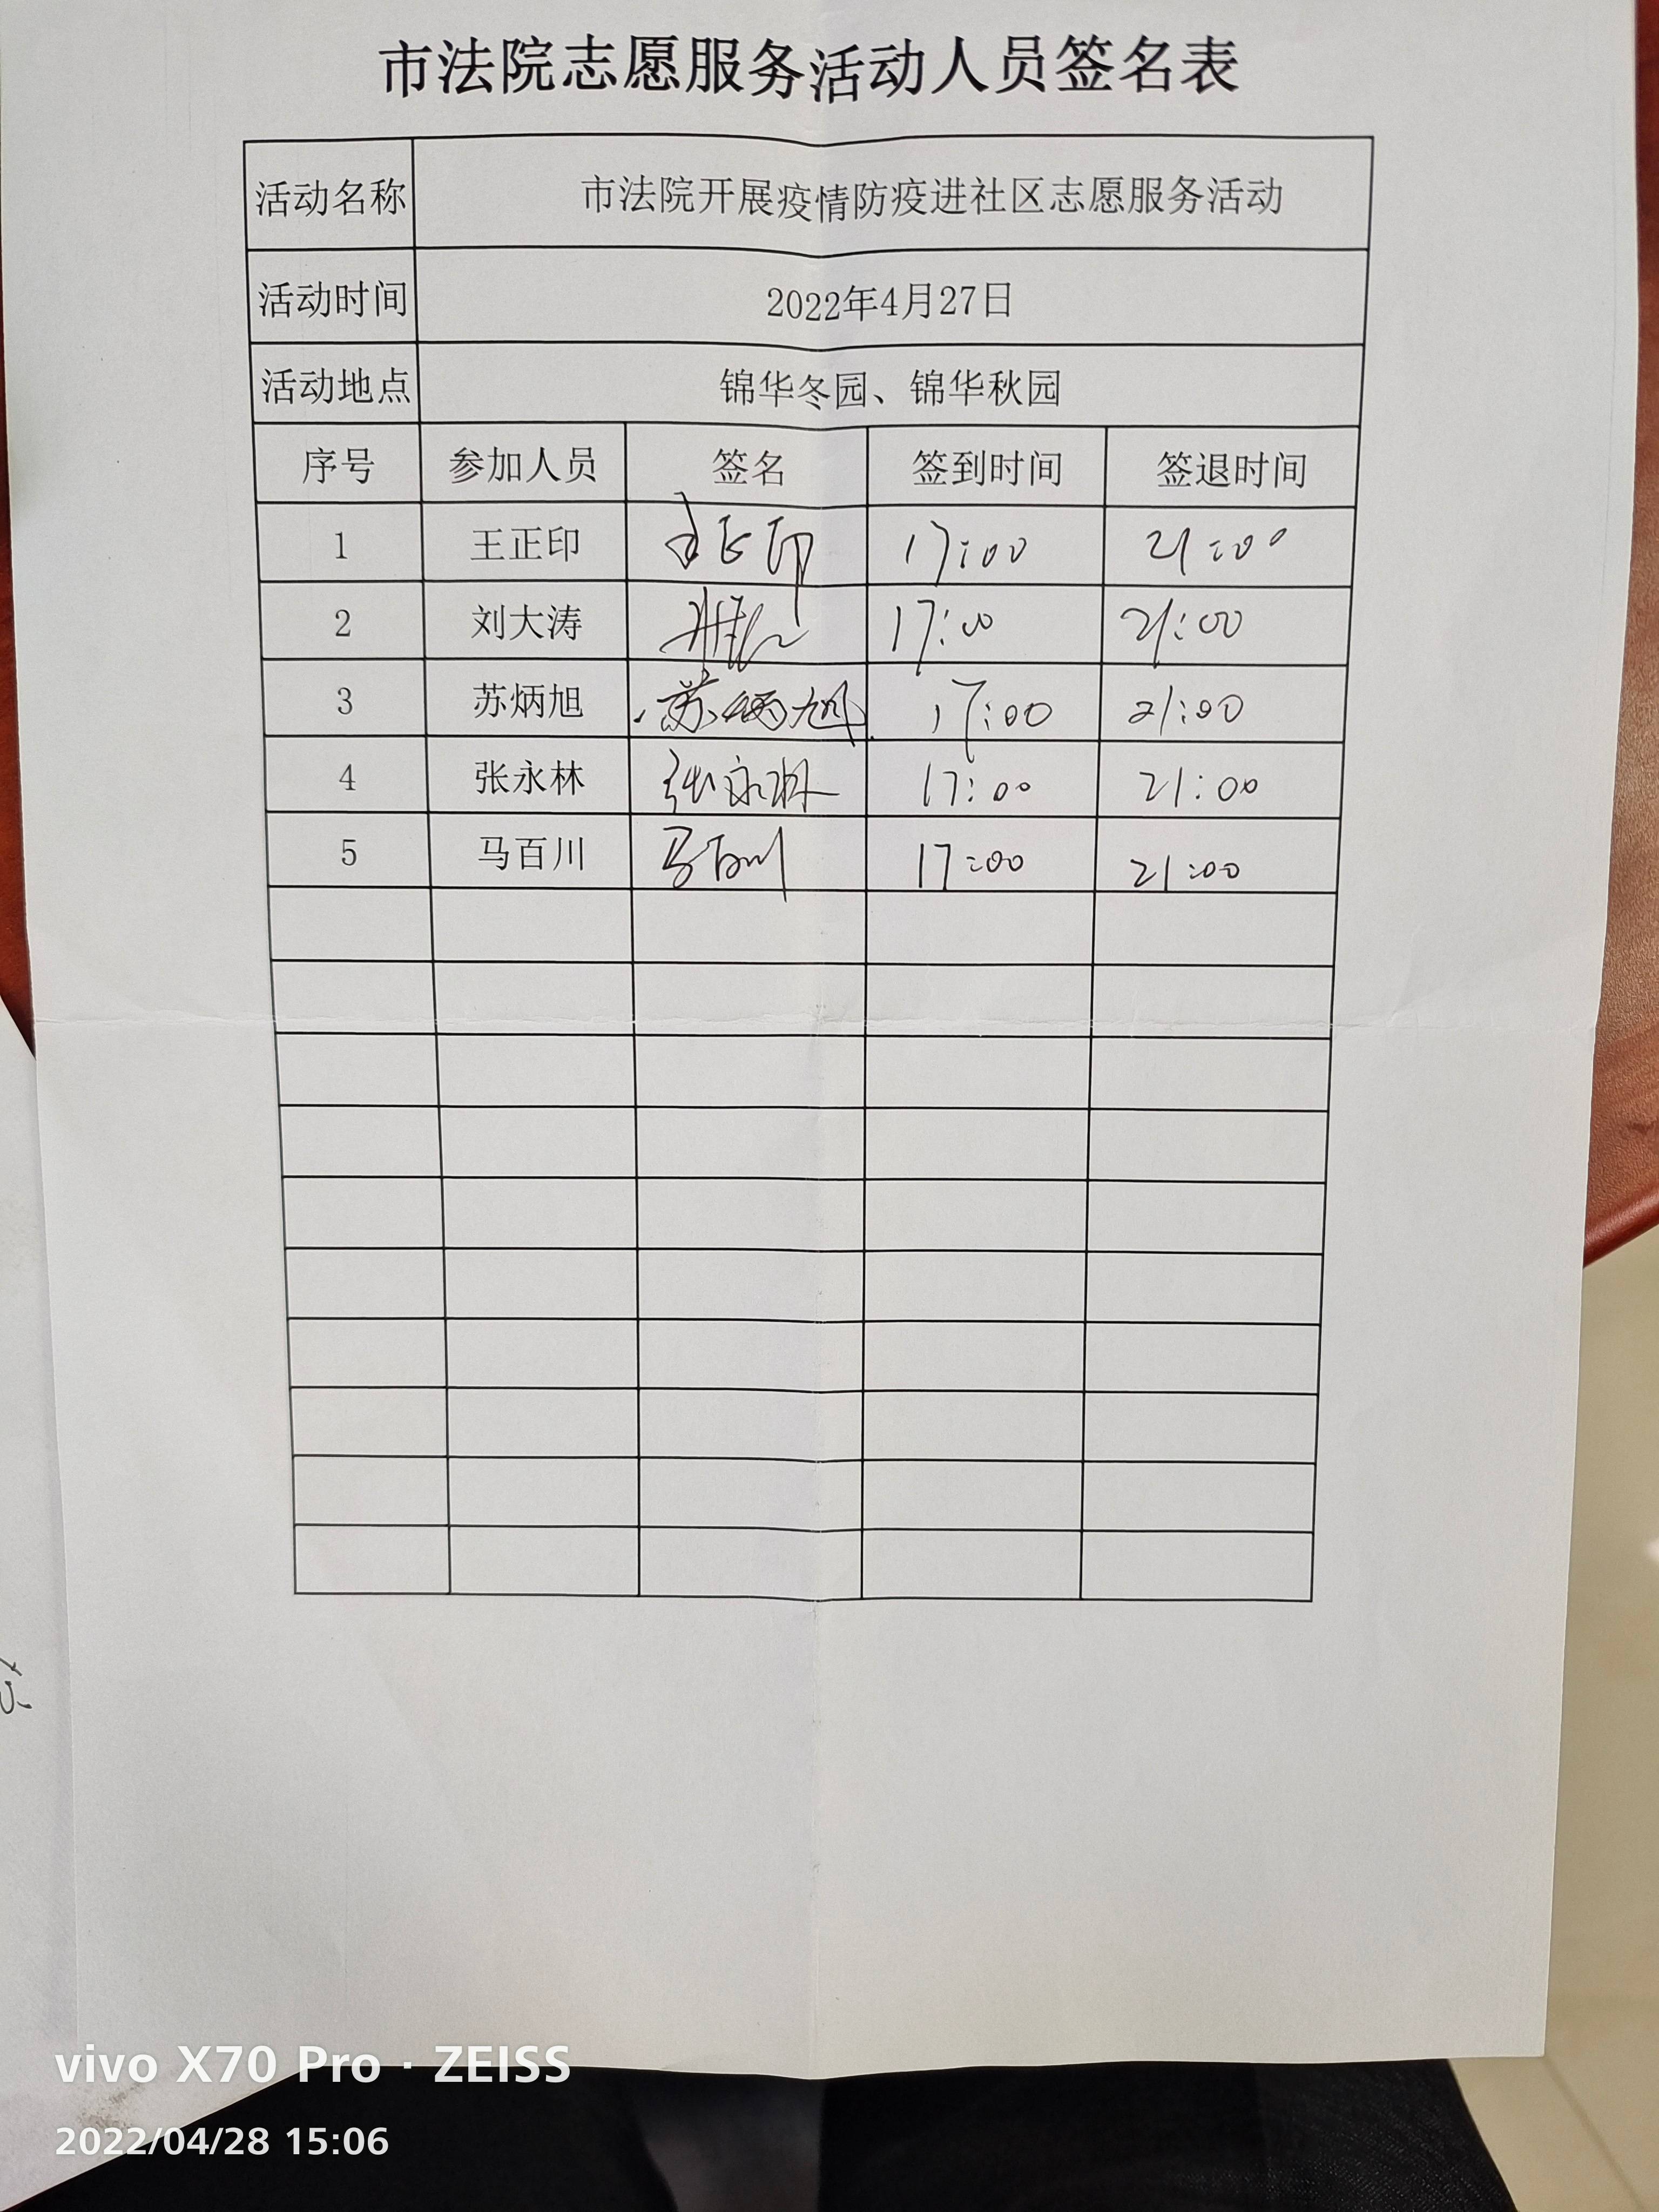 市法院志愿服务活动人员签名表
活动名称 市法院开展疫情防疫进社区志愿服务活动
活动时间 2022年4月27日
活动地点 锦华冬园、锦华秋园
序号 参加人员 签名 签到时间 签退时间
1 王正印 王正印 17:00 21:00
2 刘大涛 17:00 21:00
3 苏炳旭 苏炳旭 17:00 21:00
4 张永林 张永林 17:00 21:00
5 马百川 马百川 17:00 21:00
vivo X70 Pro · ZEISS
2022/04/28 15:06